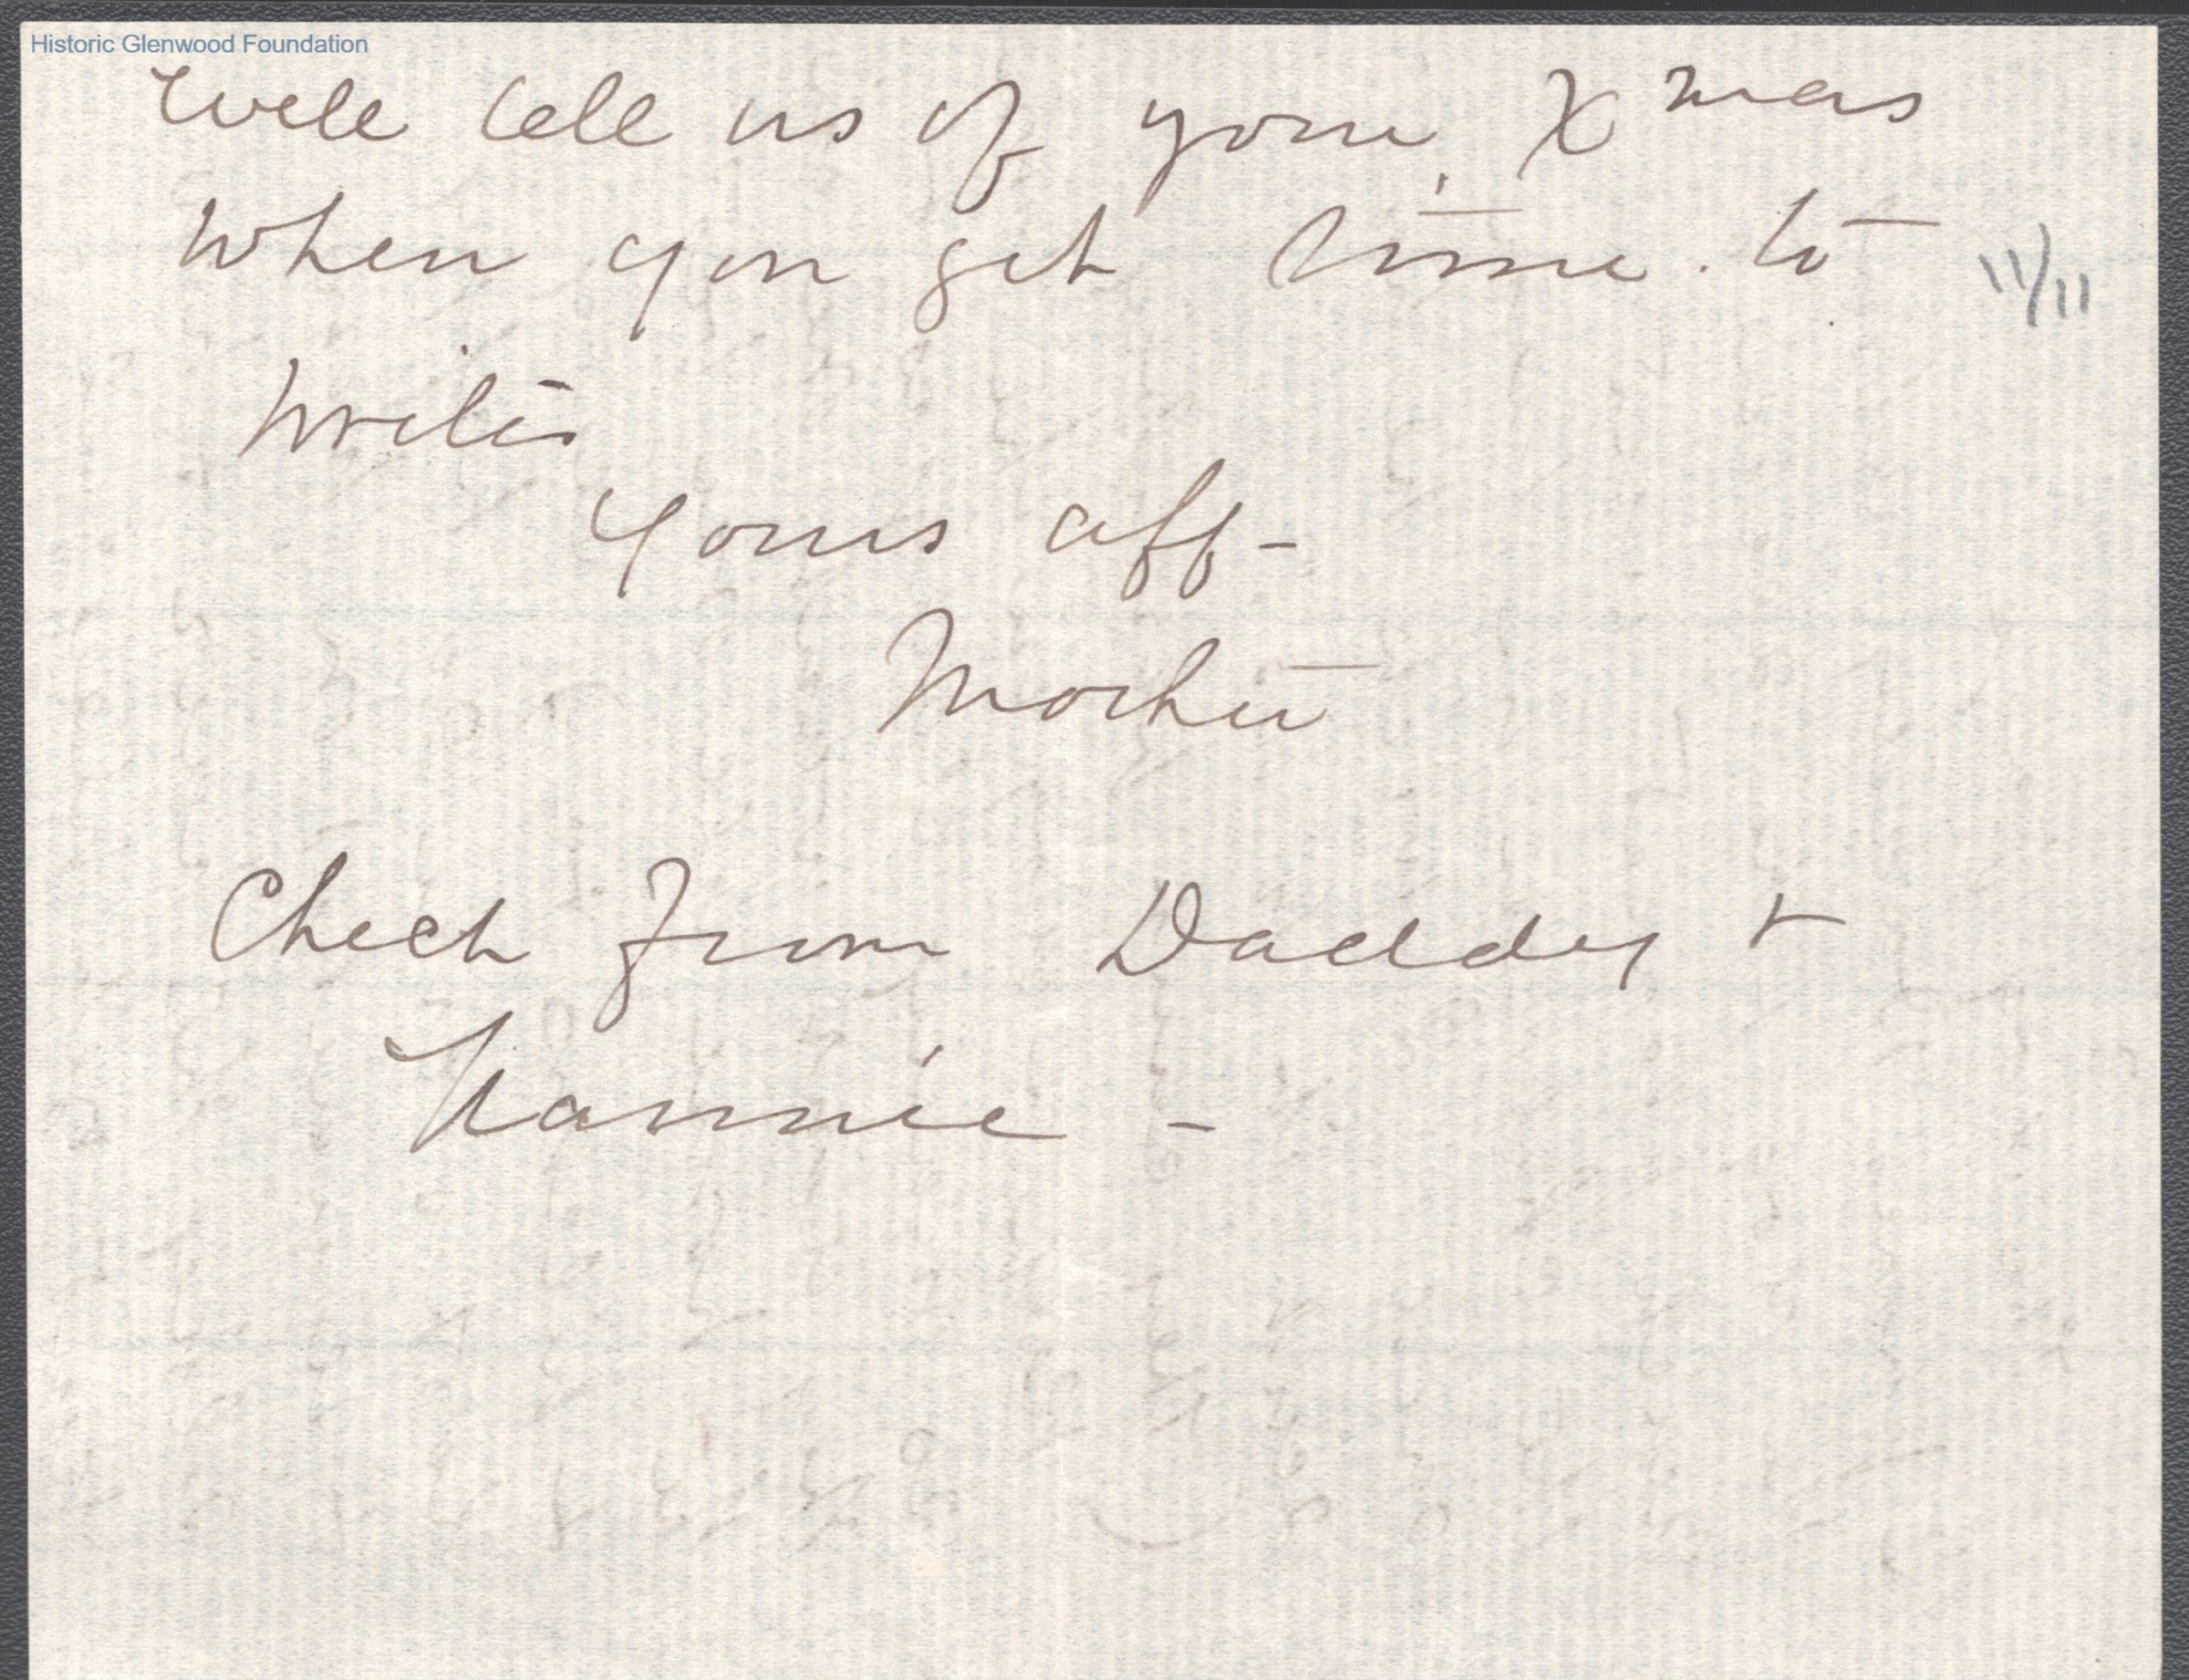 Historic Glenwood Foundation
Well tell us of your Xmas
when you get time. to
write
11/11
Yours aff-
Mother
Check from Daddy +
Nannie -